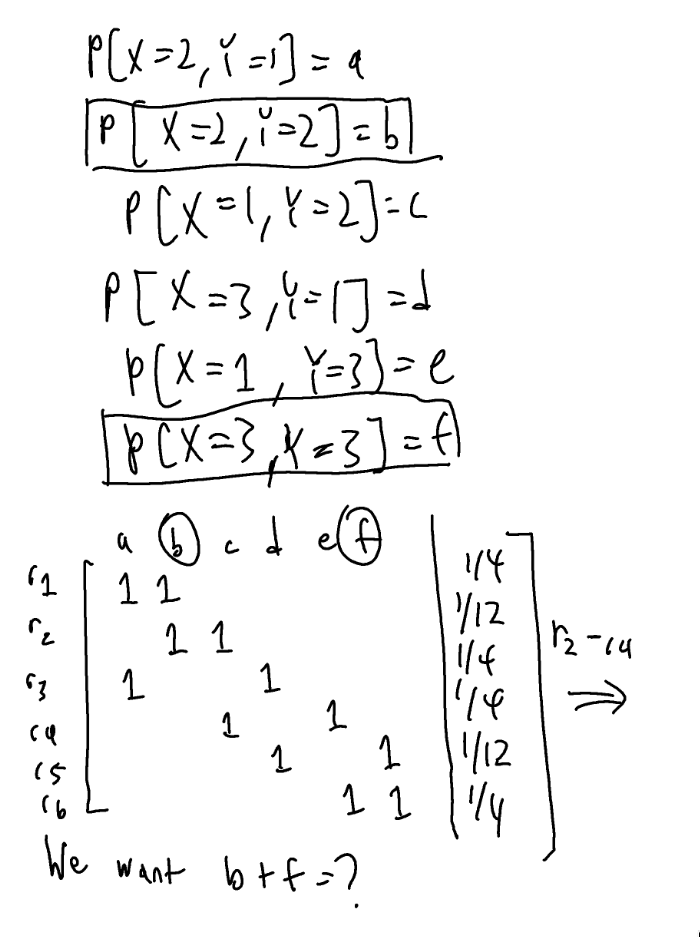 P[X=2, Y=1] = a
P[X=2, Y=2] = b
P[X=1, Y=2] = c
P[X=3, Y=1] = d
P(X=1, Y=3) = e
P[X=3, Y=3] = f
a b c d e f
r1 1 1 1/4
r2 1 1 1/12
r3 1 1 1/4
r4 1 1 1/4
r5 1 1 1/12
r6 1 1 1/4
r2-r4
⇒
We want b+f=?